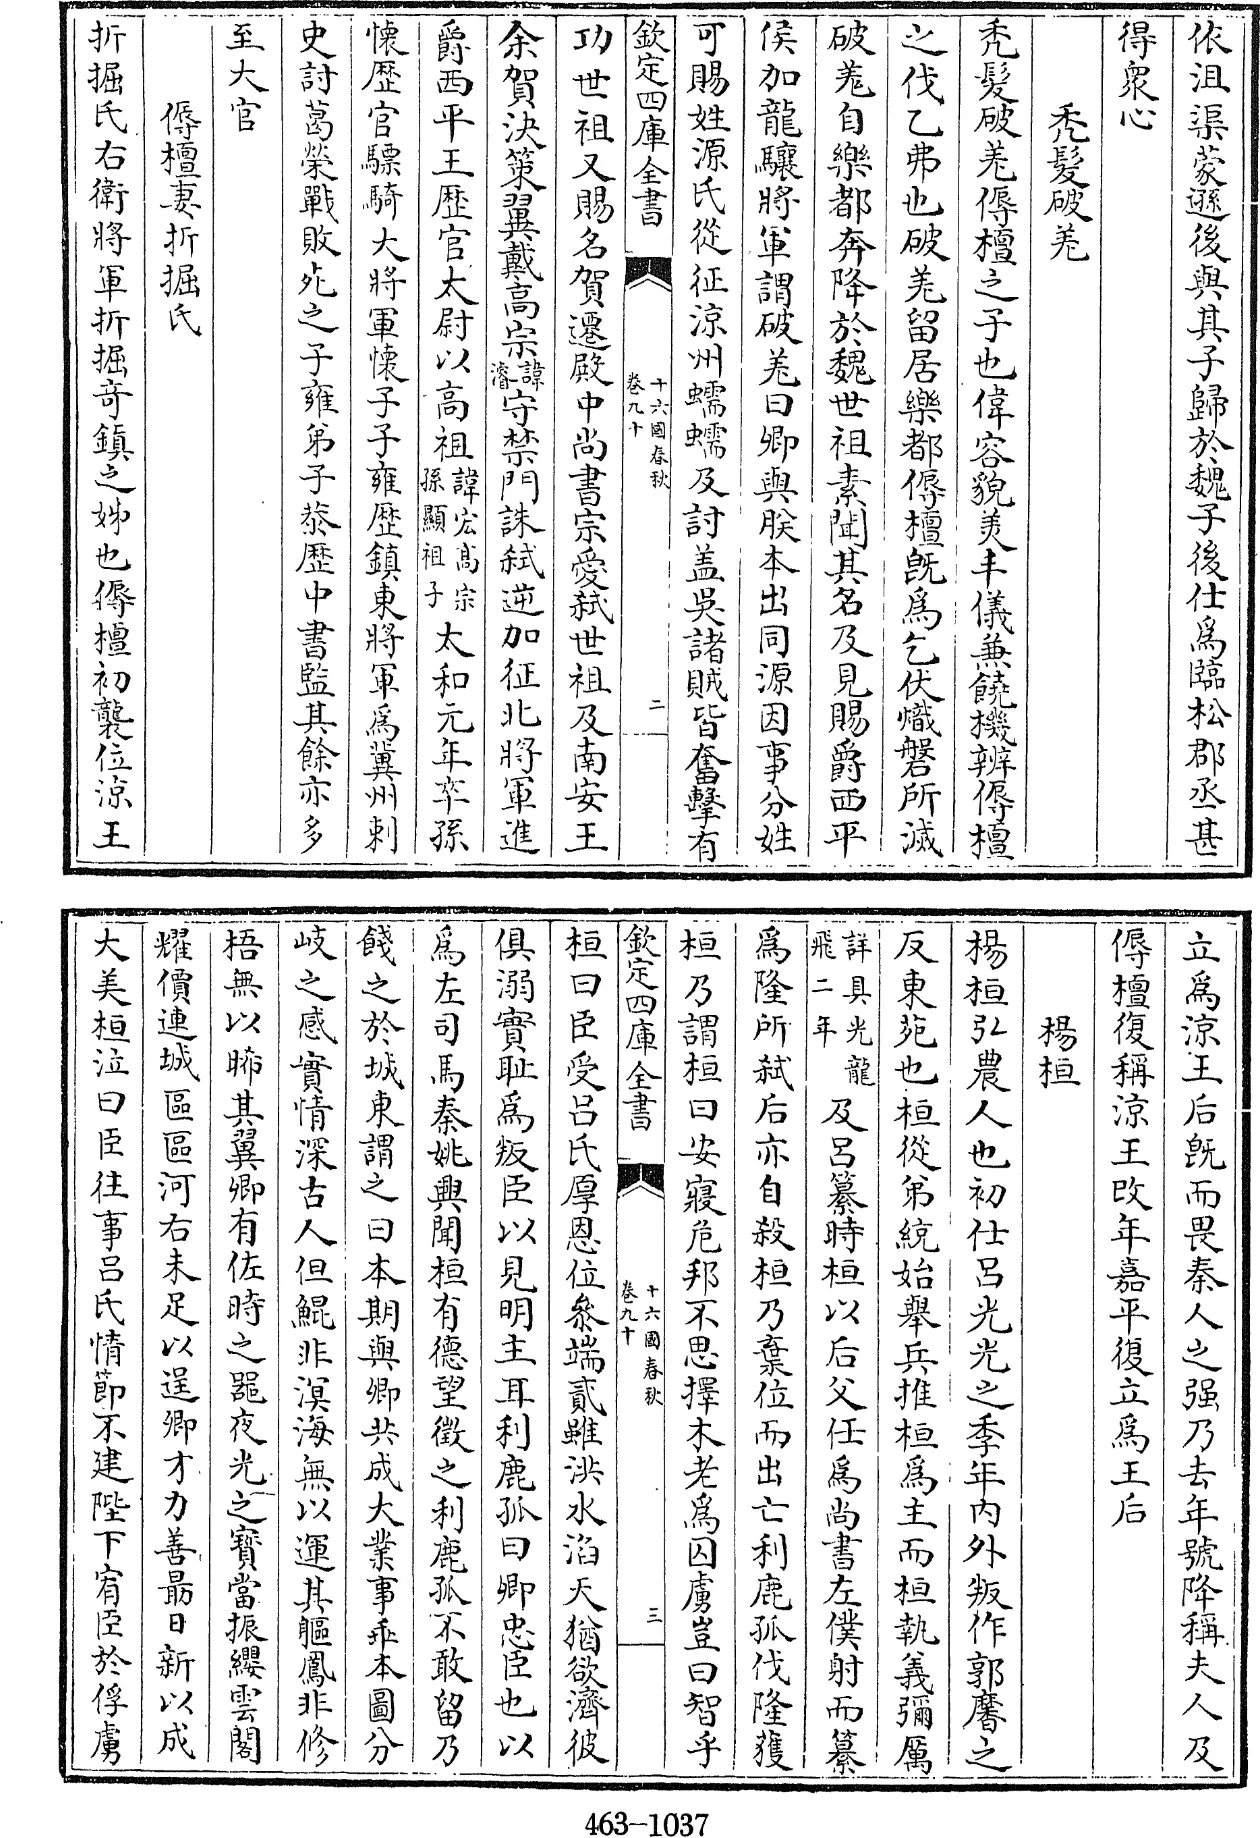 依沮渠蒙遜後與其子歸於魏子後仕爲臨松郡丞甚
得衆心
禿髮破羌
禿髮破羌傉檀之子也偉容貌美丰儀兼饒機辨傉檀
之伐乙弗也破羌留居樂都傉檀旣爲乞伏熾磐所滅
破羌自樂都奔降於魏世祖素聞其名及見賜爵西平
侯加龍驤將軍謂破羌曰卿與朕本出同源因事分姓
可賜姓源氏從征涼州蠕蠕及討盖吳諸賊皆奮擊有
欽定四庫全書
十六國春秋
卷九十
二
功世祖又賜名賀遷殿中尚書宗愛弑世祖及南安王
余賀決策翼戴高宗諱濬守禁門誅弑逆加征北將軍進
爵西平王歷官太尉以高祖諱宏髙宗孫顯祖子太和元年卒孫
懷歷官驃騎大將軍懷子子雍歷鎮東將軍爲冀州刺
史討葛榮戰敗死之子雍弟子恭歷中書監其餘亦多
至大官
傉檀妻折掘氏
折掘氏右衛將軍折掘奇鎮之姊也傉檀初襲位涼王
立爲涼王后旣而畏秦人之强乃去年號降稱夫人及
傉檀復稱涼王改年嘉平復立爲王后
楊桓
楊桓弘農人也初仕呂光光之季年内外叛作郭黁之
反東苑也桓從弟統始舉兵推桓爲主而桓執義彌厲
詳具光龍飛二年及呂纂時桓以后父任爲尚書左僕射而纂
爲隆所弑后亦自殺桓乃棄位而出亡利鹿孤伐隆獲
桓乃謂桓曰安寢危邦不思擇木老爲囚虜豈曰智乎
欽定四庫全書
十六國春秋
卷九十
三
桓曰臣受呂氏厚恩位叅端貳雖洪水滔天猶欲濟彼
俱溺實恥爲叛臣以見明主耳利鹿孤曰卿忠臣也以
爲左司馬秦姚興聞桓有德望徵之利鹿孤不敢留乃
餞之於城東謂之曰本期與卿共成大業事乖本圖分
岐之感實情深古人但鯤非溟海無以運其軀鳳非修
梧無以晞其翼卿有佐時之噐夜光之寳當振纓雲閣
耀價連城區區河右未足以逞卿才力善勗日新以成
大美桓泣曰臣往事呂氏情節不建陛下宥臣於俘虜
463-1037